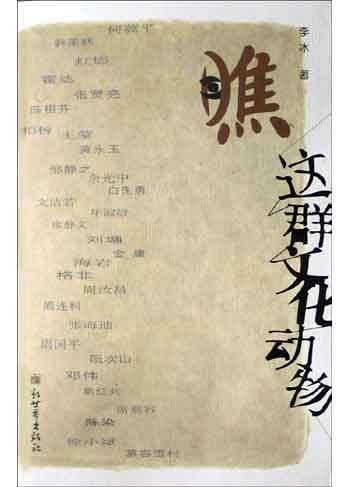 李冰 著
瞧
这群文化动物
何冀平
韩美林
虹影
霍达
张贤亮
陈祖芬
柏杨
王蒙
黄永玉
邹静之
余光中
白先勇
文洁若
廖静文
刘墉
金庸
海岩
格非
周汝昌
阎连科
张海迪
周国平
阮次山
邓伟
席慕容
陈染
徐小斌
慕容雪村
新世界出版社